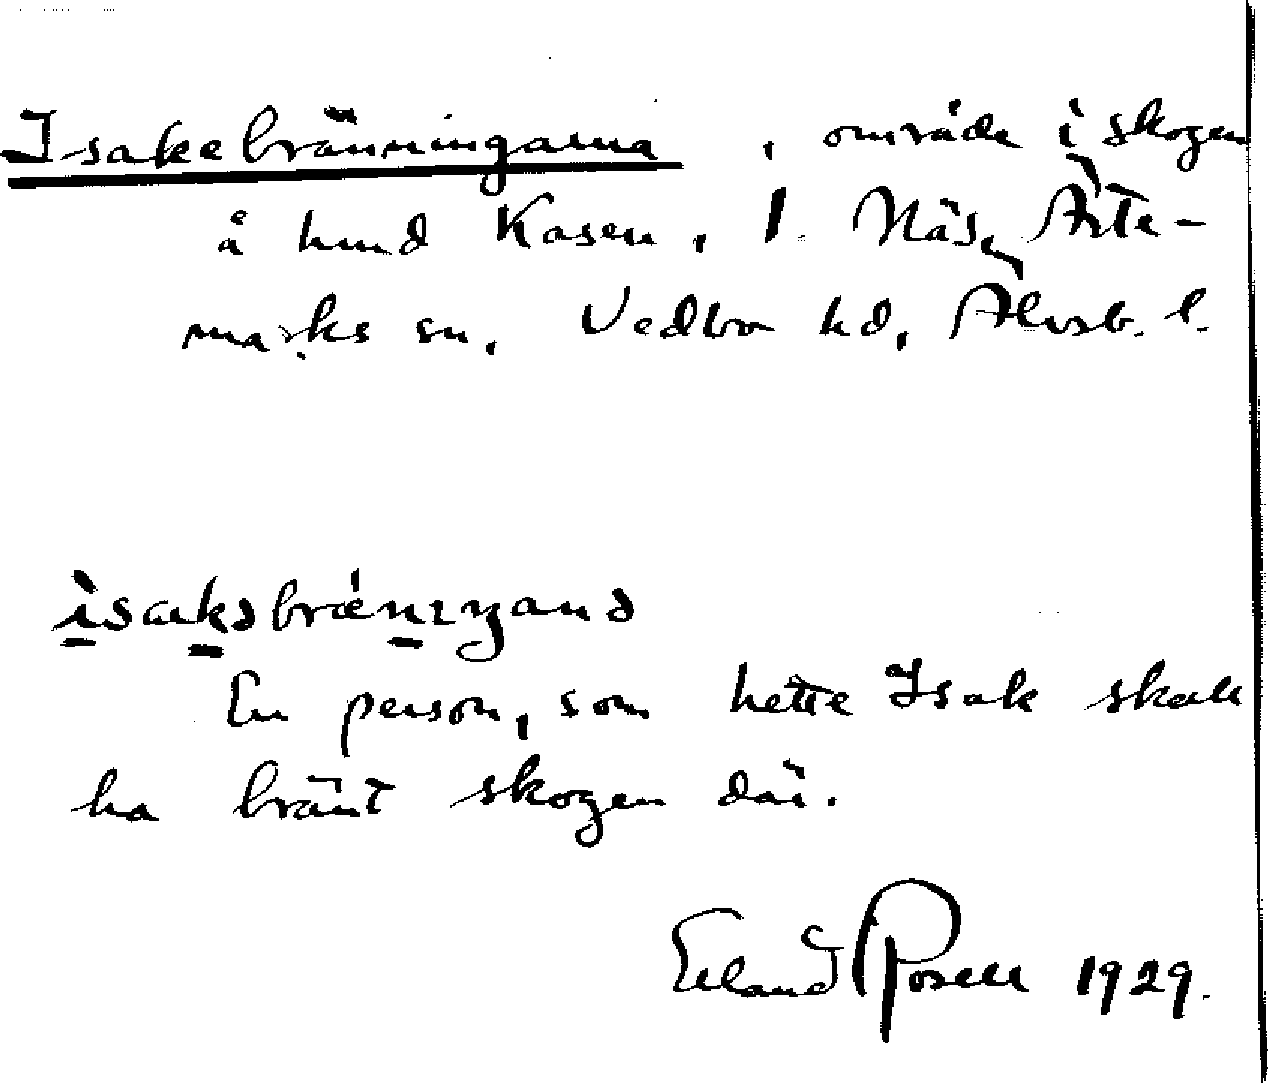 Isakebränningarna, område i skogen
å hmd Kasen, 1. Näs, Årte-
marks sn, Vedbo hd, Älvsb. l.
En person, som hette Isak skall
ha bränt skogen där.
Erland Rosell 1929.